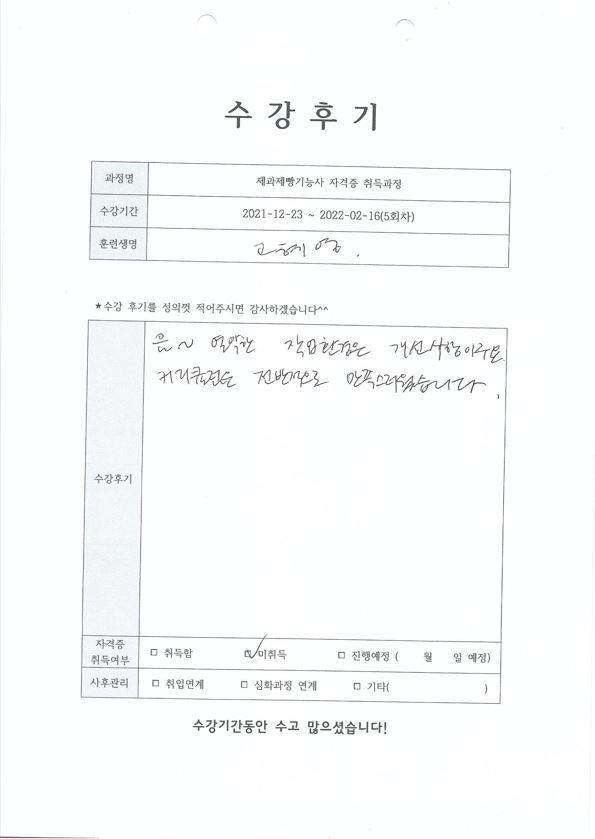 수강후기
과정명 제과제빵기능사 자격증 취득과정
수강기간 2021-12-23 ~ 2022-02-16(5회차)
훈련생명 고
★수강 후기를 성의껏 적어주시면 감사하겠습니다^^
음~ 열악한 작업환경은 개선사항이구요
수강후기 커리큘럼은 전반적으로 만족스러웠습니다.
자격증 취득여부 □ 취득함 ☑ 미취득 □ 진행예정 ( 월 일 예정)
사후관리 □ 취업연계 □ 심화과정 연계 □ 기타( )
수강기간동안 수고 많으셨습니다!